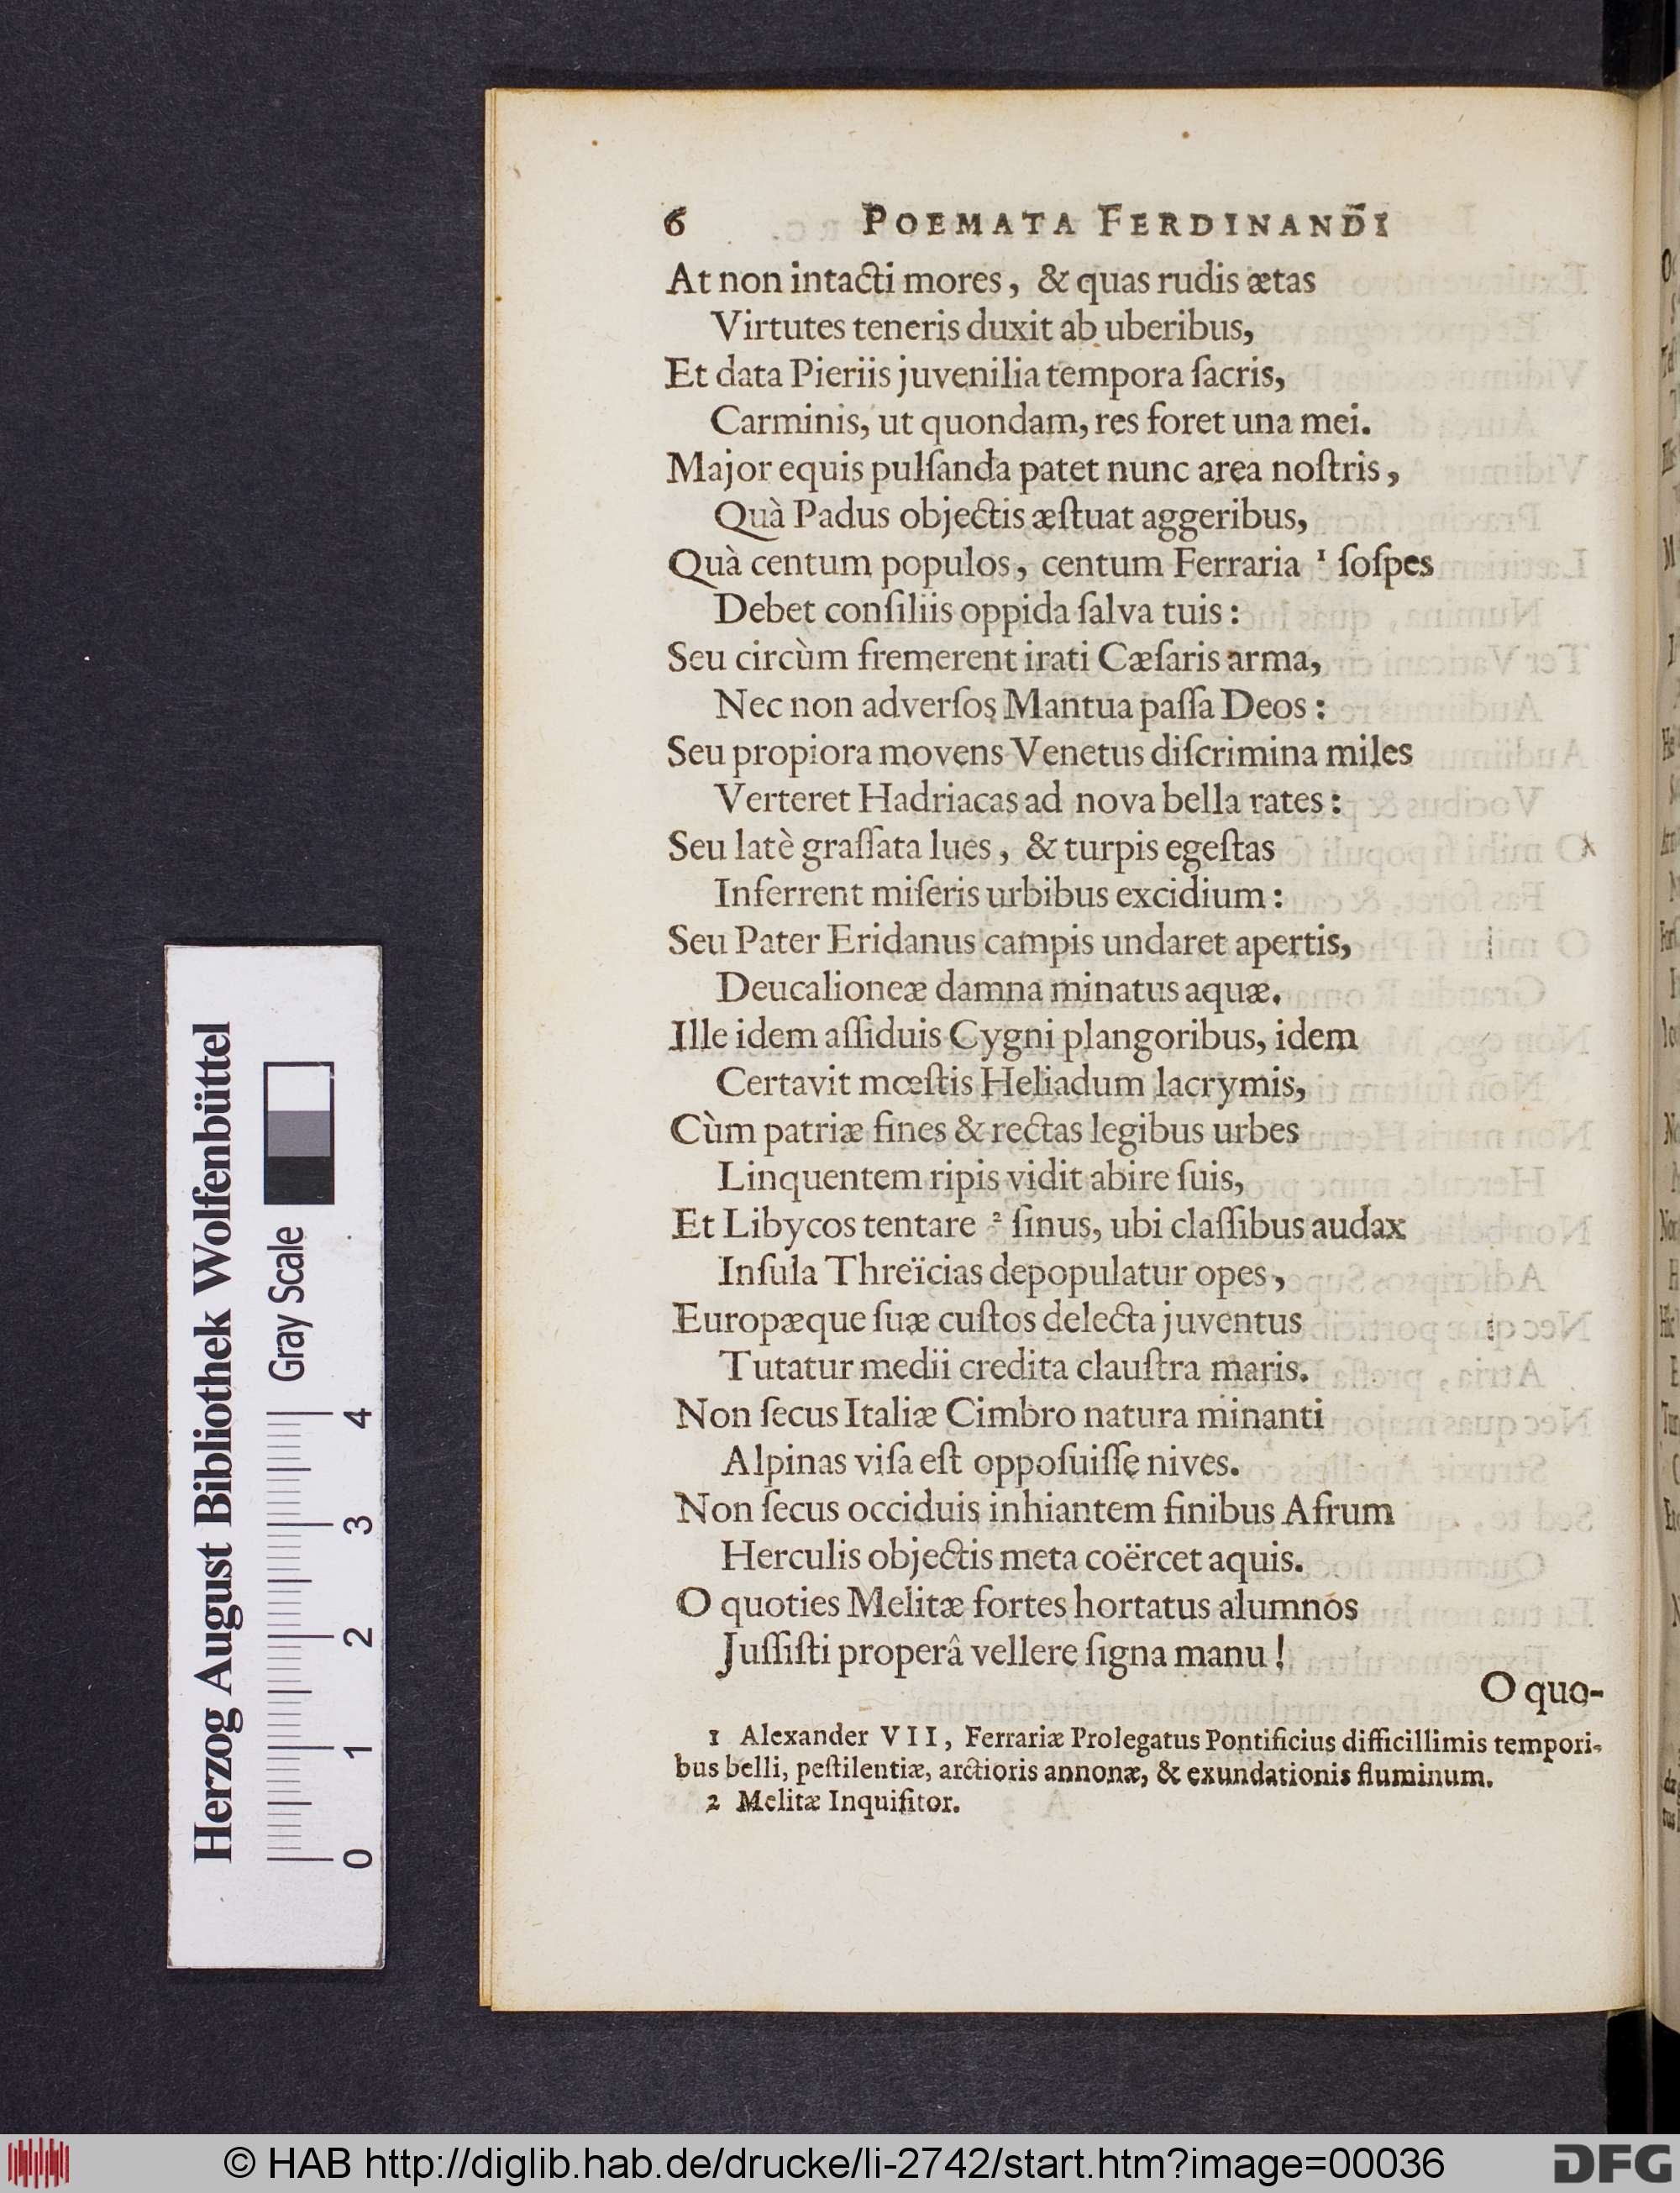 6 POEMATA FERDINANDI
At non intacti mores, & quas rudis ætas
Virtutes teneris duxit ab uberibus,
Et data Pieriis juvenilia tempora ſacris,
Carminis, ut quondam, res foret una mei.
Major equis pulſanda patet nunc area noſtris,
Quà Padus objectis æſtuat aggeribus,
Quà centum populos, centum Ferraria ¹ ſoſpes
Debet conſiliis oppida ſalva tuis:
Seu circùm fremerent irati Cæſaris arma,
Nec non adverſos Mantua paſſa Deos:
Seu propiora movens Venetus diſcrimina miles
Verteret Hadriacas ad nova bella rates:
Seu latè graſſata lues, & turpis egeſtas
Inferrent miſeris urbibus excidium:
Seu Pater Eridanus campis undaret apertis,
Deucalioneæ damna minatus aquæ.
Ille idem aſſiduis Cygni plangoribus, idem
Certavit mœſtis Heliadum lacrymis,
Cùm patriæ fines & rectas legibus urbes
Linquentem ripis vidit abire ſuis,
Et Libycos tentare ² ſinus, ubi claſſibus audax
Inſula Threïcias depopulatur opes,
Europæque ſuæ cuſtos delecta juventus
Tutatur medii credita clauſtra maris.
Non ſecus Italiæ Cimbro natura minanti
Alpinas viſa eſt oppoſuiſſe nives.
Non ſecus occiduis inhiantem finibus Afrum
Herculis objectis meta coërcet aquis.
O quoties Melitæ fortes hortatus alumnos
Juſſiſti properâ vellere ſigna manu!
O quo-
1 Alexander VII, Ferrariæ Prolegatus Pontificius difficillimis tempori-
bus belli, peſtilentiæ, arctioris annonæ, & exundationis fluminum.
2 Melitæ Inquiſitor.
Herzog August Bibliothek Wolfenbüttel
Gray Scale
0 1 2 3 4
© HAB http://diglib.hab.de/drucke/li-2742/start.htm?image=00036
DFG